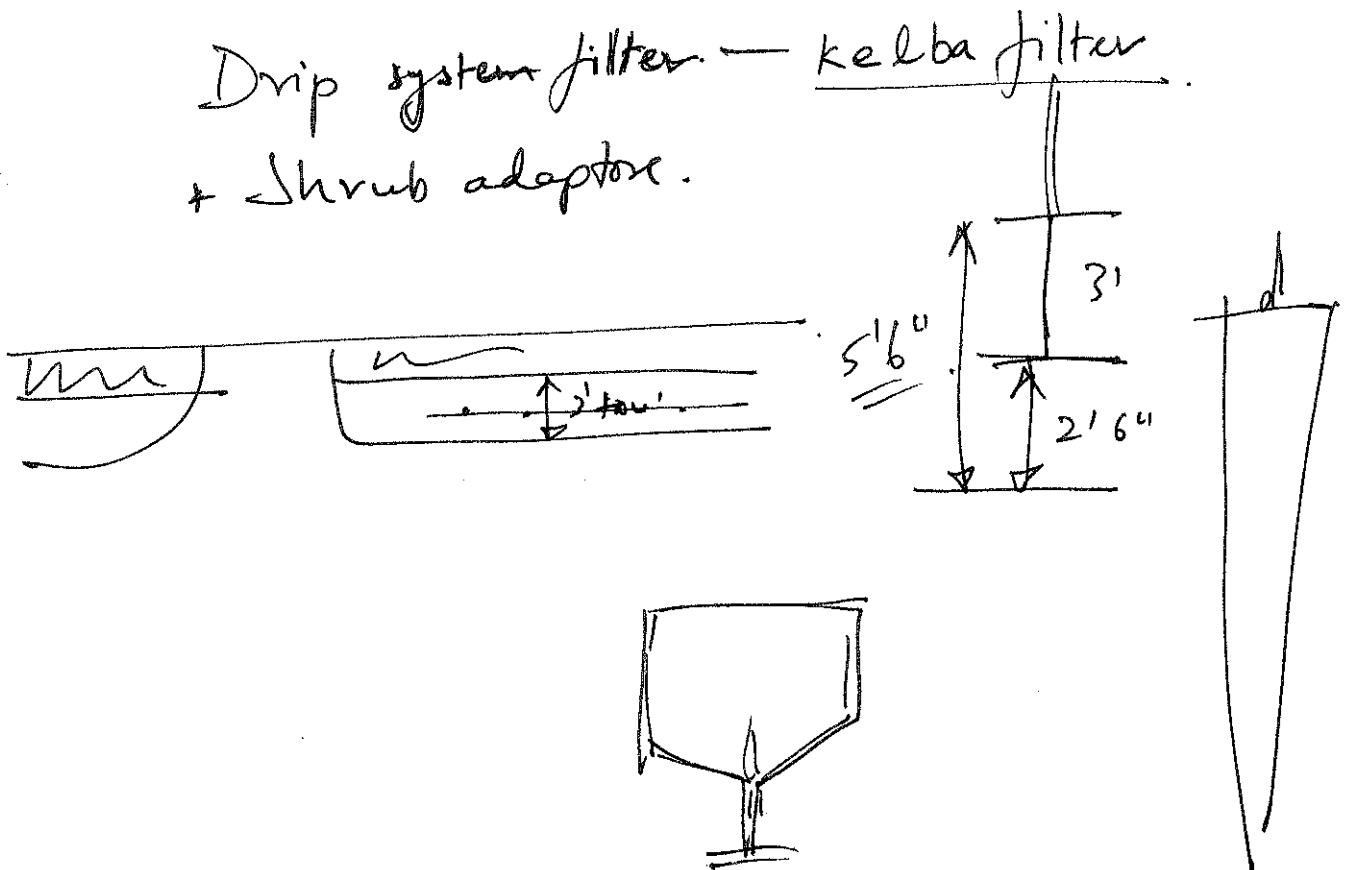 Drip system filter. — kelba filter.
+ Shrub adaptore.
3'
5'6"
2'6"